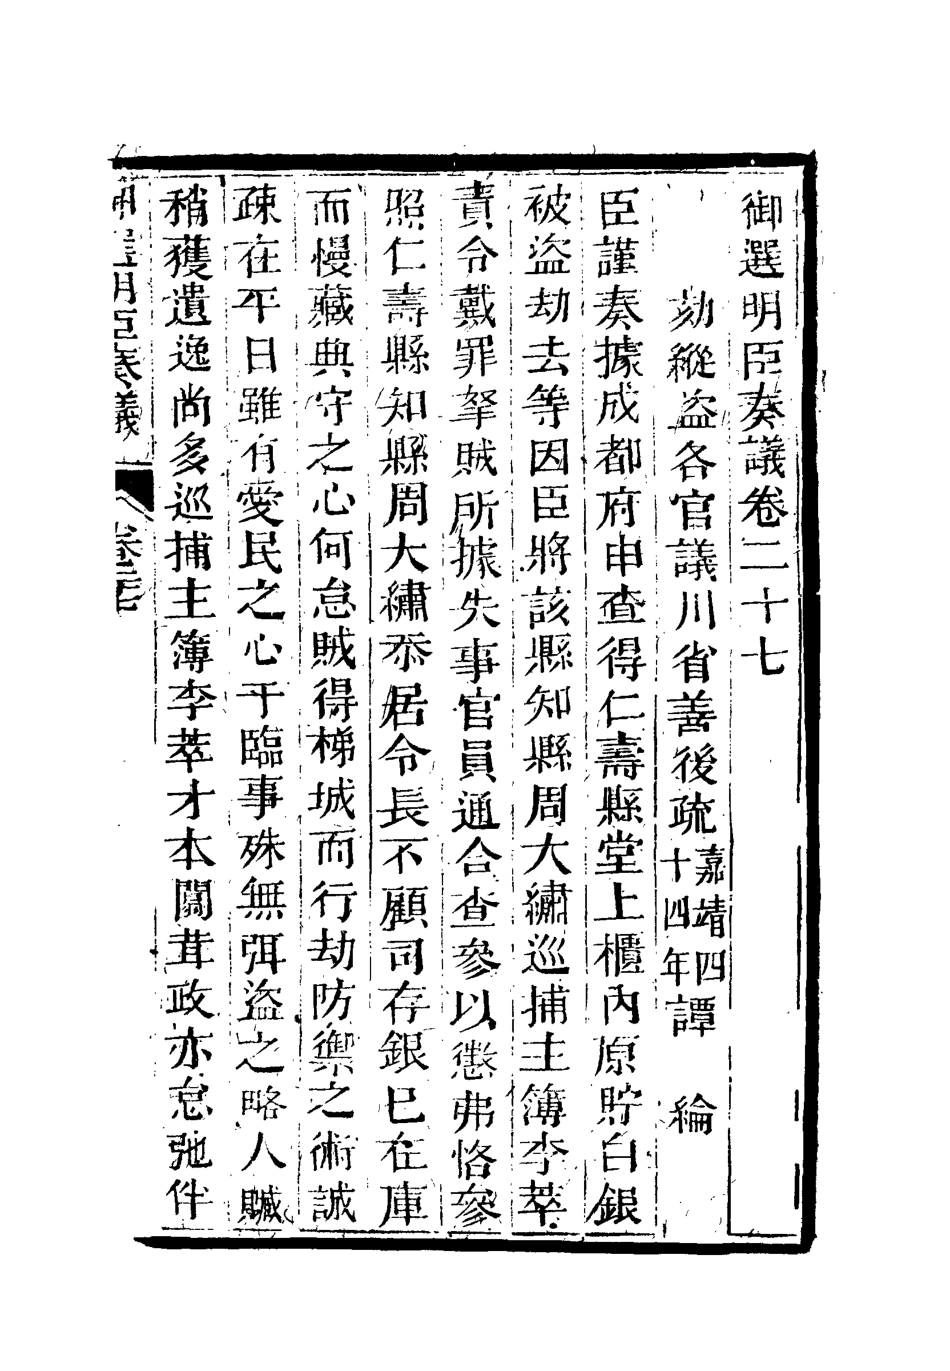 御選明臣奏議卷二十七
劾縱盜各官議川省善後疏嘉靖四十四年譚綸
臣謹奏據成都府申查得仁壽縣堂上櫃內原貯白銀
被盜劫去等因臣將該縣知縣周大繡巡捕主簿李萃
責令戴罪拏賊所據失事官員通合查參以懲弗恪參
照仁壽縣知縣周大繡忝居令長不顧司存銀已在庫
而慢藏典守之心何怠賊得梯城而行劫防禦之術誠
疎在平日雖有愛民之心于臨事殊無弭盜之略人贓
稍獲遺逸尚多巡捕主簿李萃才本闒茸政亦怠弛伴
御選明臣奏議
卷二十七